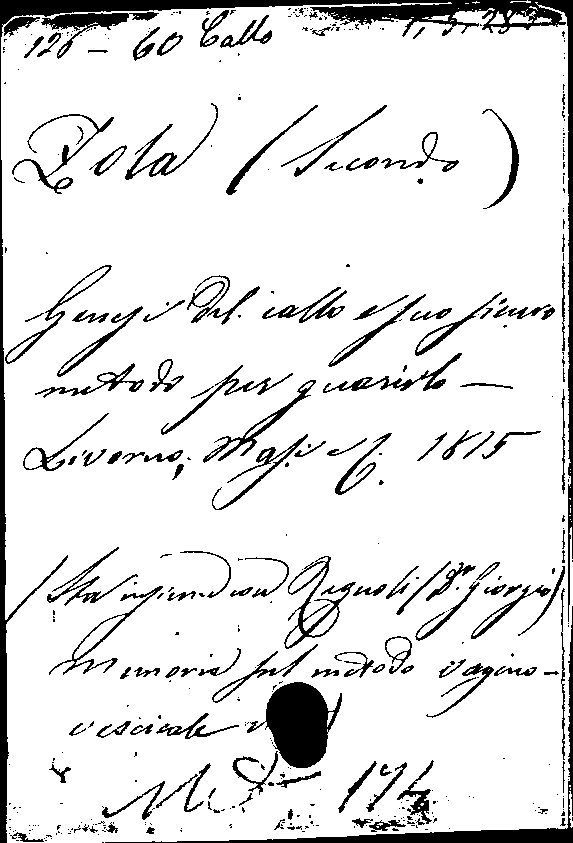 126 – 60 Callo
Zola (Secondo)
Genesi del callo e suo sicuro
metodo per guarirlo —
Livorno, Masi e C. 1815
(Sta insieme con Regnoli (Dr. Giorgio)
Memoria sul metodo vagino-
vescicale
174